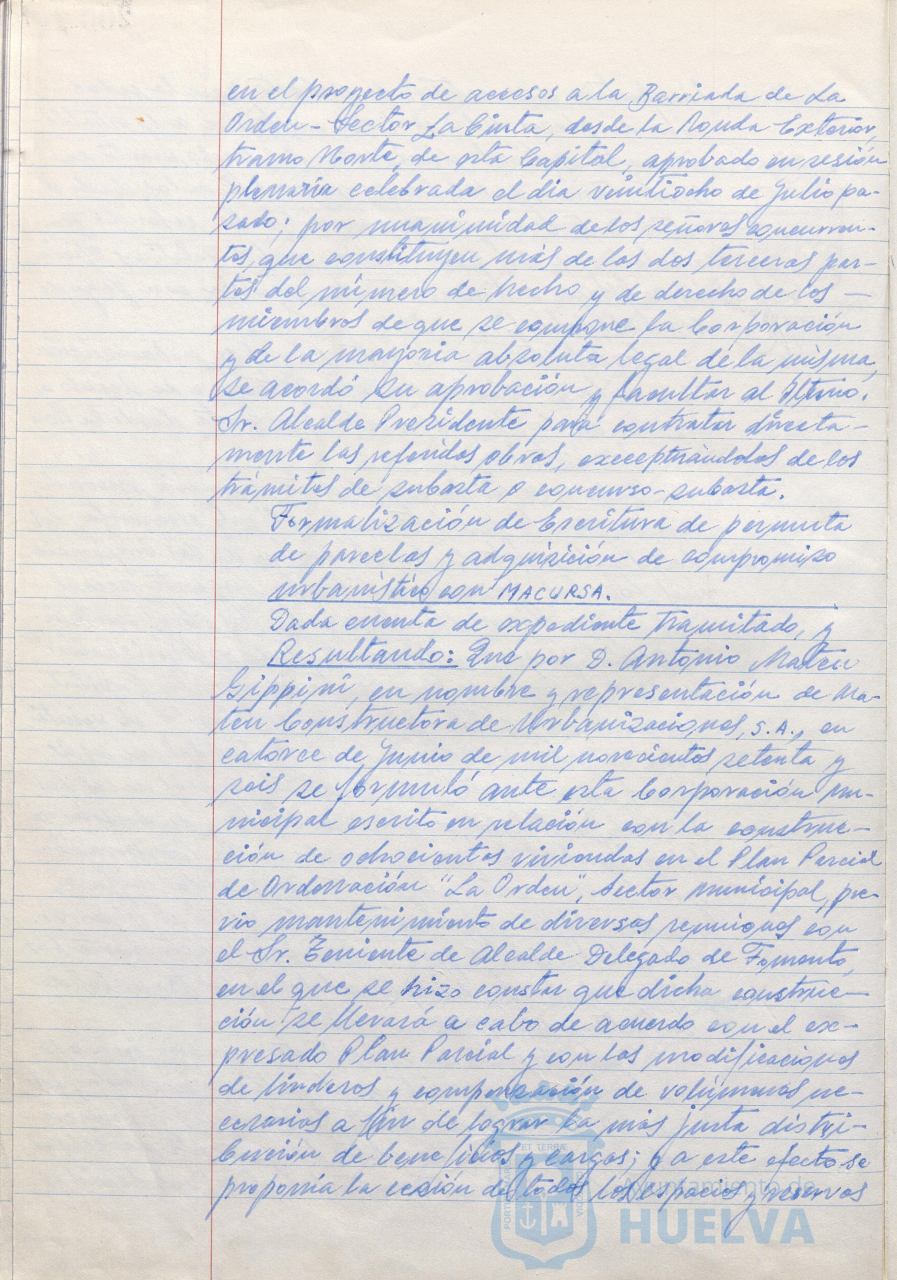 en el proyecto de accesos a la Barriada de La
Orden - Sector La Cinta, desde la Ronda Exterior,
tramo Norte, de esta Capital, aprobado en sesión
plenaria celebrada el día veintiocho de Julio pa-
sado; por unanimidad de los señores concurren-
tes, que constituyen más de las dos terceras par-
tes del número de hecho y de derecho de los —
miembros de que se compone la Corporación
y de la mayoría absoluta legal de la misma,
se acordó su aprobación y facultar al Iltmo.
Sr. Alcalde Presidente para contratar directa-
mente las referidas obras, exceptuándolas de los
trámites de subasta o concurso-subasta.
Formalización de Escritura de permuta
de parcelas y adquisición de compromiso
urbanístico con MACURSA.
Dada cuenta de expediente tramitado, y
Resultando: Que por D. Antonio Mateu
Gippini, en nombre y representación de Ma-
teu Constructora de Urbanizaciones, S.A., en
catorce de Junio de mil novecientos setenta y
seis se formuló ante esta Corporación mu-
nicipal escrito en relación con la construc-
ción de ochocientas viviendas en el Plan Parcial
de Ordenación "La Orden", Sector Municipal, pre-
vio mantenimiento de diversas reuniones con
el Sr. Teniente de Alcalde Delegado de Fomento,
en el que se hizo constar que dicha construc-
ción se llevará a cabo de acuerdo con el ex-
presado Plan Parcial y con las modificaciones
de linderos y compensación de volúmenes ne-
cesarias a fin de lograr la más justa distri-
bución de beneficios y cargas; y a este efecto se
proponía la cesión de todos los espacios y reservas
Ayuntamiento de
HUELVA